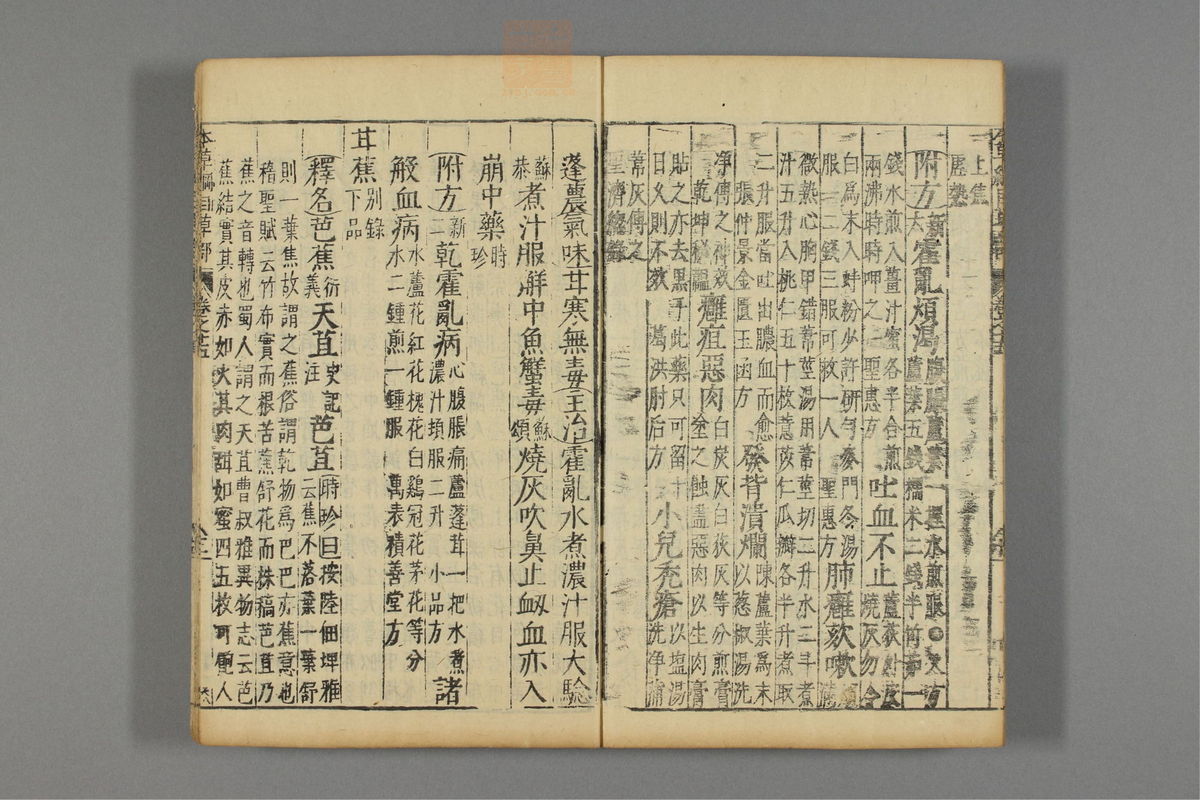 上焦虛熱
附方新六霍亂煩渴腹脹蘆葉一握水煎服○又方
蘆葉五錢糯米二錢半竹茹一
錢水煎入薑汁蜜各半合煎
兩沸時時呷之聖惠方吐血不止蘆荻外皮燒灰勿令
白為末入蚌粉少許研勻麥門冬湯
服一二錢三服可救一人聖惠方肺癰欬嗽煩滿
微熱心胸甲錯葦莖湯用葦莖切二升水二斗煮
汁五升入桃仁五十枚薏苡仁瓜瓣各半升煮取
二升服當吐出膿血而愈
張仲景金匱玉函方發背潰爛陳蘆葉為末以葱椒湯洗
淨傅之神效
乾坤秘韞癰疽惡肉白炭灰白荻灰等分煎膏塗之蝕盡惡肉以生肉膏
貼之亦去黑子此藥只可留十
日久則不效葛洪肘后方小兒禿瘡以塩湯洗淨蒲
葦灰傅之
聖濟總錄
蓬農氣味甘寒無毒主治霍亂水煮濃汁服大驗
蘇恭煮汁服解中魚蟹毒蘇頌燒灰吹鼻止衂血亦入
崩中藥時珍
附方新二乾霍亂病心腹脹痛蘆蓬茸一把水煮濃汁頓服二升小品方諸
般血病水蘆花紅花槐花白雞冠花茅花等分水二鍾煎一鍾服萬表積善堂方
甘蕉别錄下品
釋名芭蕉衍義天苴史記注芭苴時珍曰按陸佃埤雅云蕉不落葉一葉舒
則一葉焦故謂之蕉俗謂乾物為巴巴亦蕉意也
稽聖賦云竹布實而根苦蕉舒花而株槁芭苴乃
蕉之音轉也蜀人謂之天苴曹叔雅異物志云芭
蕉結實其皮赤如火其肉甜如蜜四五枚可飽人
本草綱目草部 卷之十五